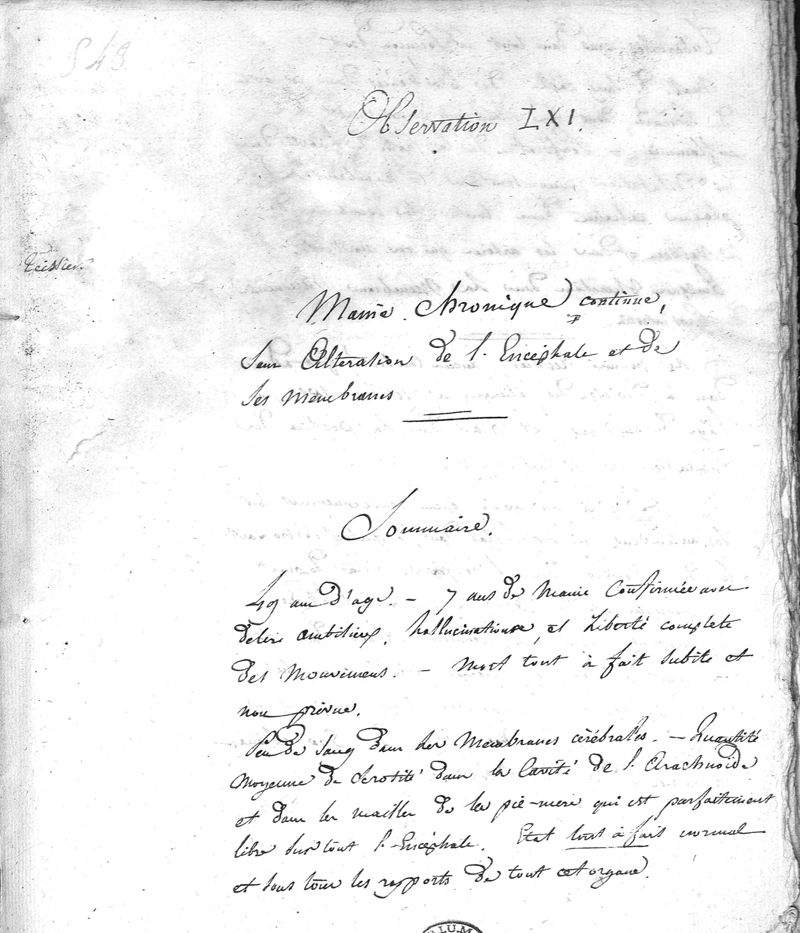 549
Observation LXI.
Teissier.
Manie Chronique continue,
sans Altération de l'Encéphale et de
ses membranes
Sommaire.
49 ans d'age. - 7 ans de Manie Confirmée avec
délire ambitieux, hallucinations, et Liberté complete
des Mouvemens. - Mort tout à fait subite et
non prévue.
Peu de sang dans les Membranes cérébrales. - Quantité
moyenne de serosité dans la Cavité de l'Arachnoïde
et dans les mailles de la pie-mere qui est parfaitement
libre sur tout l'Encéphale. Etat tout à fait normal
et sous tous les rapports de tout cet organe.